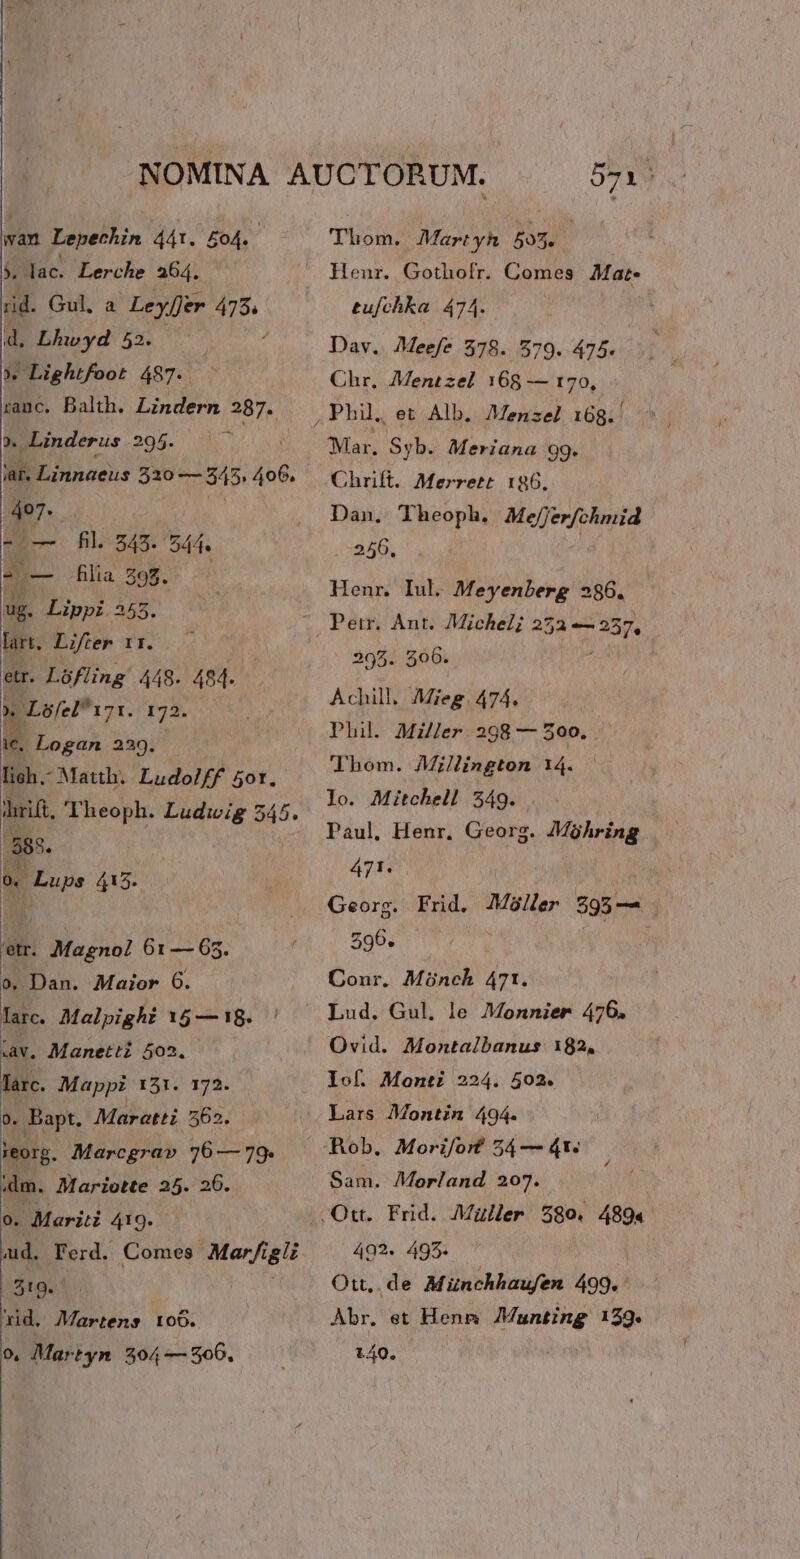 NOMINA AUCTORUM. 571
wan Lepechin 441. 504.
. Iac. Lerche 264.
rid. Gul. a Leyſſer 473.
d. Lhwyd 52.
. Lightfoot 487.
ranc. Balth. Lindern 287.
. Linderus 295.
ar. Linnaeus 320—343. 406.
407.
- — fil. 343. 344.
- — filia 393.
ug. Lippi 253.
art. Liſter 11.
etr. Löfling 448. 484.
. Löſel 171. 172.
ac. Logan 229.
ich. Matth. Ludolff 501.
hriſt. Theoph. Ludwig 345.
388.
o. Lups 413.
etr. Magnol 61—63.
o. Dan. Maior 6.
Marc. Malpighi 15—18.
av. Manetti 502.
Marc. Mappi 131. 172.
o. Bapt. Maratti 362.
eorg. Marcgrav 76—79.
dm. Mariotte 25. 26.
o. Mariti 419.
ud. Ferd. Comes Marſigli
319.
rid. Martens 106.
o. Martyn 304—306.
Thom. Martyn 503.
Henr. Gothofr. Comes Mat-
tuſchka 474.
Dav. Meeſe 378. 379. 475.
Chr. Mentzel 168—170.
Phil. et Alb. Menzel 168.
Mar. Syb. Meriana 99.
Chriſt. Merrett 186.
Dan. Theoph. Meſſerſchmid
256.
Henr. Iul. Meyenberg 286.
Petr. Ant. Micheli 232—237.
293. 306.
Achill. Mieg 474.
Phil. Miller 298—300.
Thom. Millington 14.
Io. Mitchell 349.
Paul. Henr. Georg. Möhring
471.
Georg. Frid. Möller 393—
396.
Conr. Mönch 471.
Lud. Gul. le Monnier 476.
Ovid. Montalbanus 182.
Ioſ. Monti 224. 502.
Lars Montin 494.
Rob. Moriſon 34—41.
Sam. Morland 207.
Ott. Frid. Müller 380. 489.
492. 493.
Ott. de Münchhauſen 499.
Abr. et Henr. Munting 139.
140.